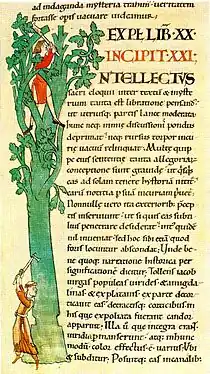 ad indaganda mysteria trahim', veritatem
fortasse opis vacuare videamur.
EXPL LIB XX
INCIPIT XXI
NTELLECTUS
sacri eloquii inter textu et myste
rium tanta est libratione pensand'
ut utriusq; partis lance moderata
hunc neq; nimie discussionis pondus
deprimat neq; rursus torpor incu
rie vacuu relinquat. Multe quip
pe eius sententie tanta allegoriaru
conceptione sunt gravide ut
eas ad solam tenere hystoria nitit'
earu notitia p sua incuriam privet'.
Nonnulle vero ita exteriorib; precep
tis inserviunt ut siquis eas subti
lius penetrare desiderat int' quide
nil inveniat sed hoc sibi etia quod
foris locuntur abscondat. Unde be
ne quoq; narratione historica per
significatione dicitur. Tollens iacob
virgas populeas virides et amigda
linas et ex platanis ex parte decor
ticavit eas detractisq; corticibus in
his que expoliata fuerant candor
apparuit. Illa que integra erant
viridia pmanserunt atq; in hunc
modu color effect' e varius. Ubi
et subditur. Posuitq; eas in canalib;